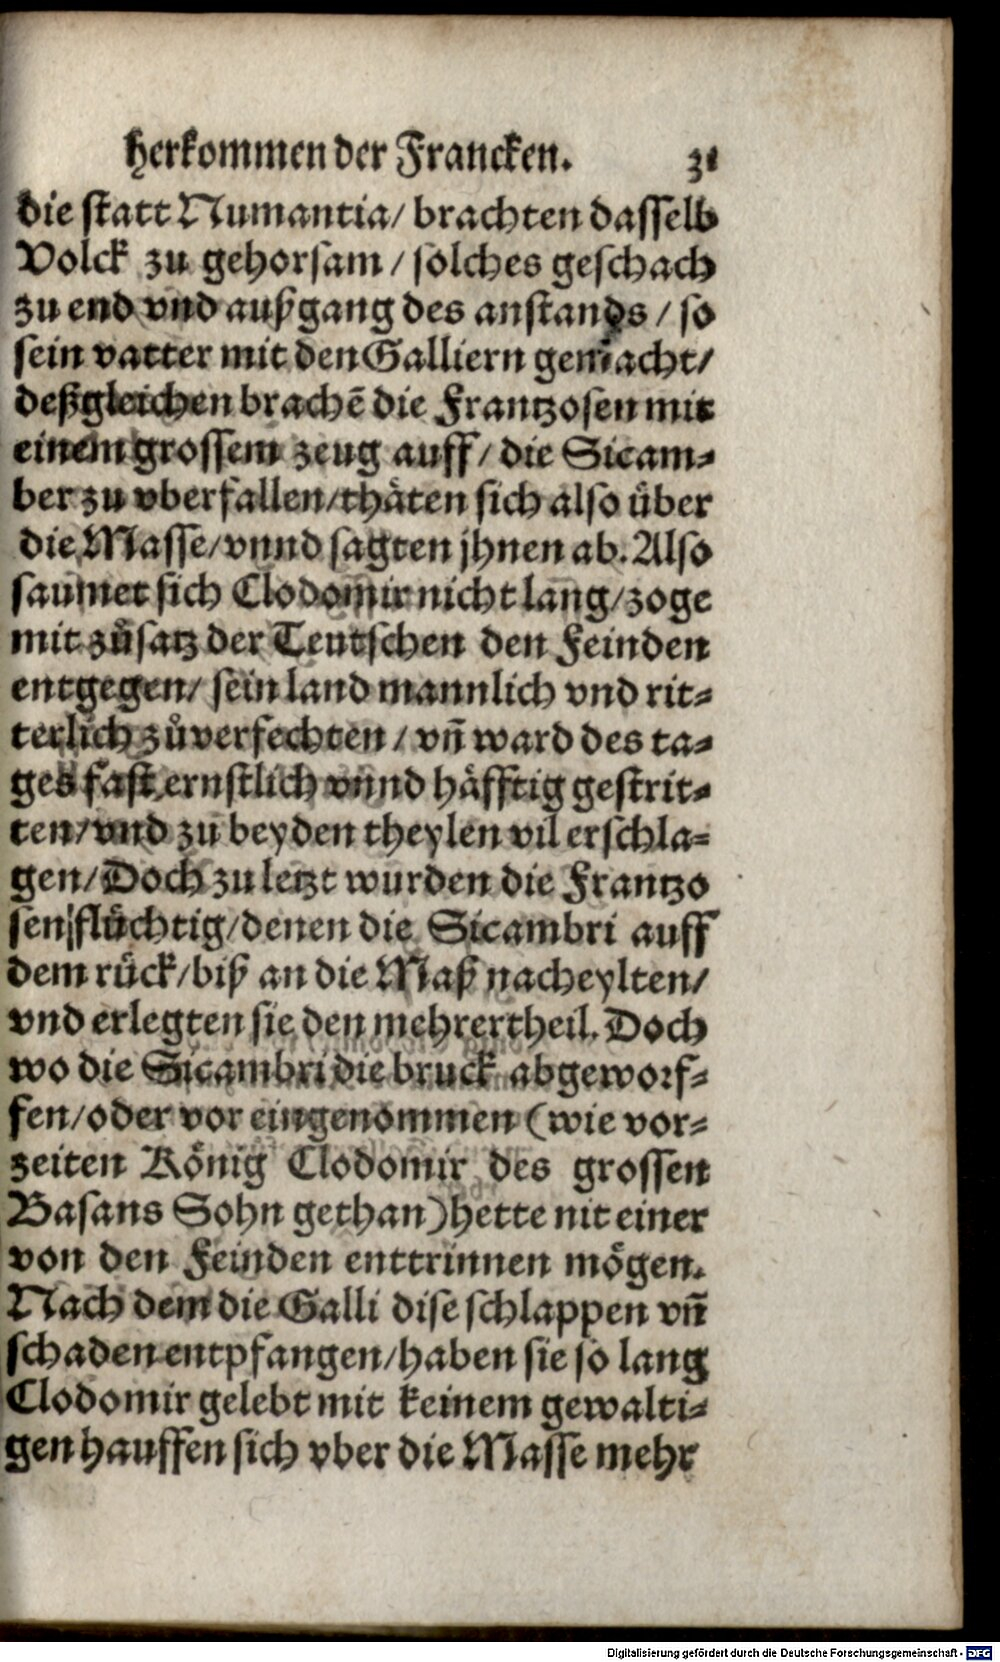 herkommen der Francken. 31
die statt Numantia/ brachten dasselb
Volck zu gehorsam / solches geschach
zu end vnd außgang des anstands / so
sein vatter mit den Galliern gemacht/
deßgleichen brachē die Frantzosen mit
einem grossem zeug auff / die Sicam⸗
ber zu vberfallen/thäten sich also über
die Masse/vnnd sagten jhnen ab. Also
saumet sich Clodomir nicht lang/zoge
mit zůsatz der Teutschen den Feinden
entgegen/ sein land mannlich vnd rit⸗
terlich zůverfechten / vñ ward des ta⸗
ges fast ernstlich vnnd häfftig gestrit⸗
ten/vnd zu beyden theylen vil erschla⸗
gen/Doch zu letzt wurden die Frantzo
sen flüchtig/denen die Sicambri auff
dem rück/biß an die Maß nacheylten/
vnd erlegten sie den mehrertheil. Doch
wo die Sicambri die bruck abgeworf⸗
fen/oder vor eingenommen (wie vor⸗
zeiten König Clodomir des grossen
Basans Sohn gethan)hette nit einer
von den Feinden enttrinnen mögen.
Nach dem die Galli dise schlappen vñ
schaden entpfangen/haben sie so lang
Clodomir gelebt mit keinem gewalti⸗
gen hauffen sich vber die Masse mehr
Digitalisierung gefördert durch die Deutsche Forschungsgemeinschaft - DFG